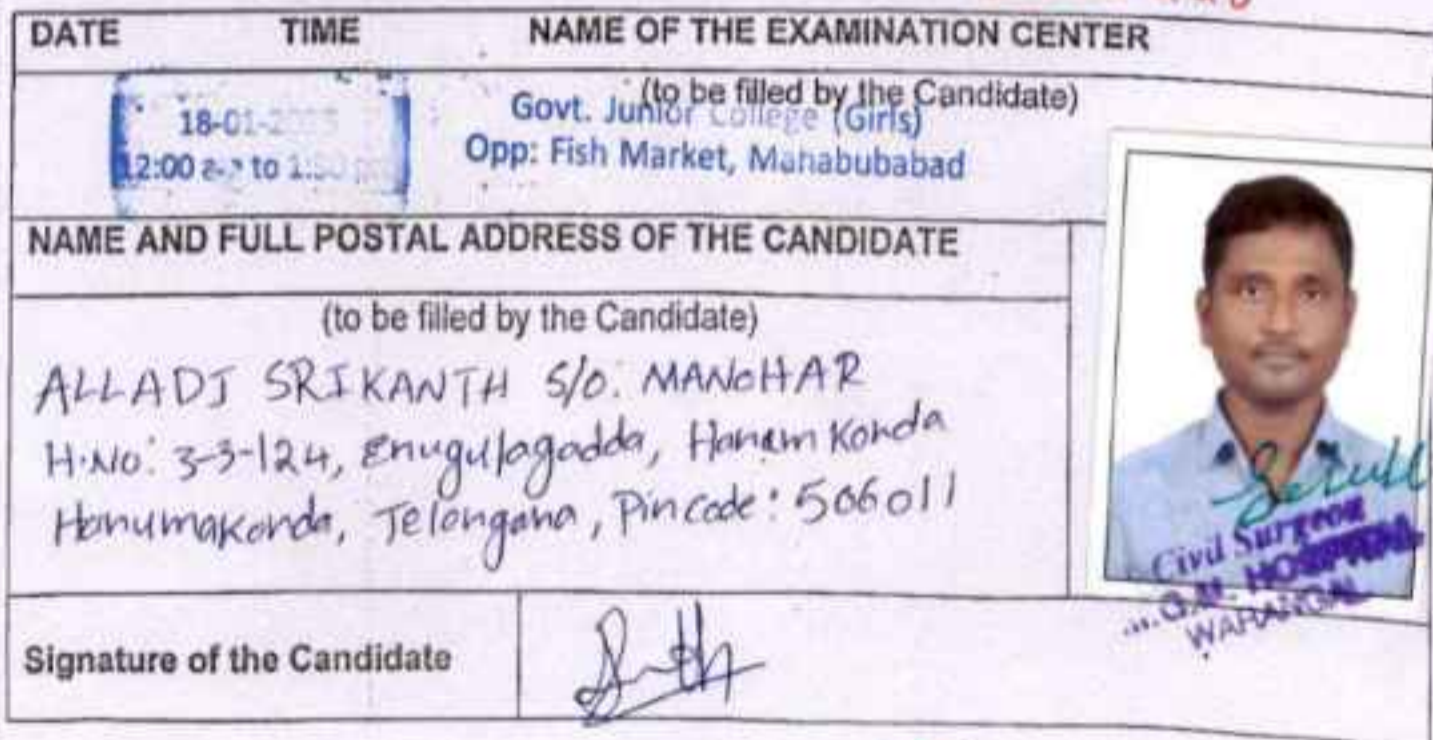 DATE TIME NAME OF THE EXAMINATION CENTER
(to be filled by the Candidate)
18-01-
12:00 to
Govt. Junior College (Girls)
Opp: Fish Market, Mahabubabad
NAME AND FULL POSTAL ADDRESS OF THE CANDIDATE
(to be filled by the Candidate)
ALLADI SRIKANTH S/O. MANOHAR
H.NO: 3-3-124, Enugulagadda, Hanamkonda
Hanumakonda, Telangana, Pincode: 506011
Civil Surgeon
HOSPITAL
WARANGAL
Signature of the Candidate